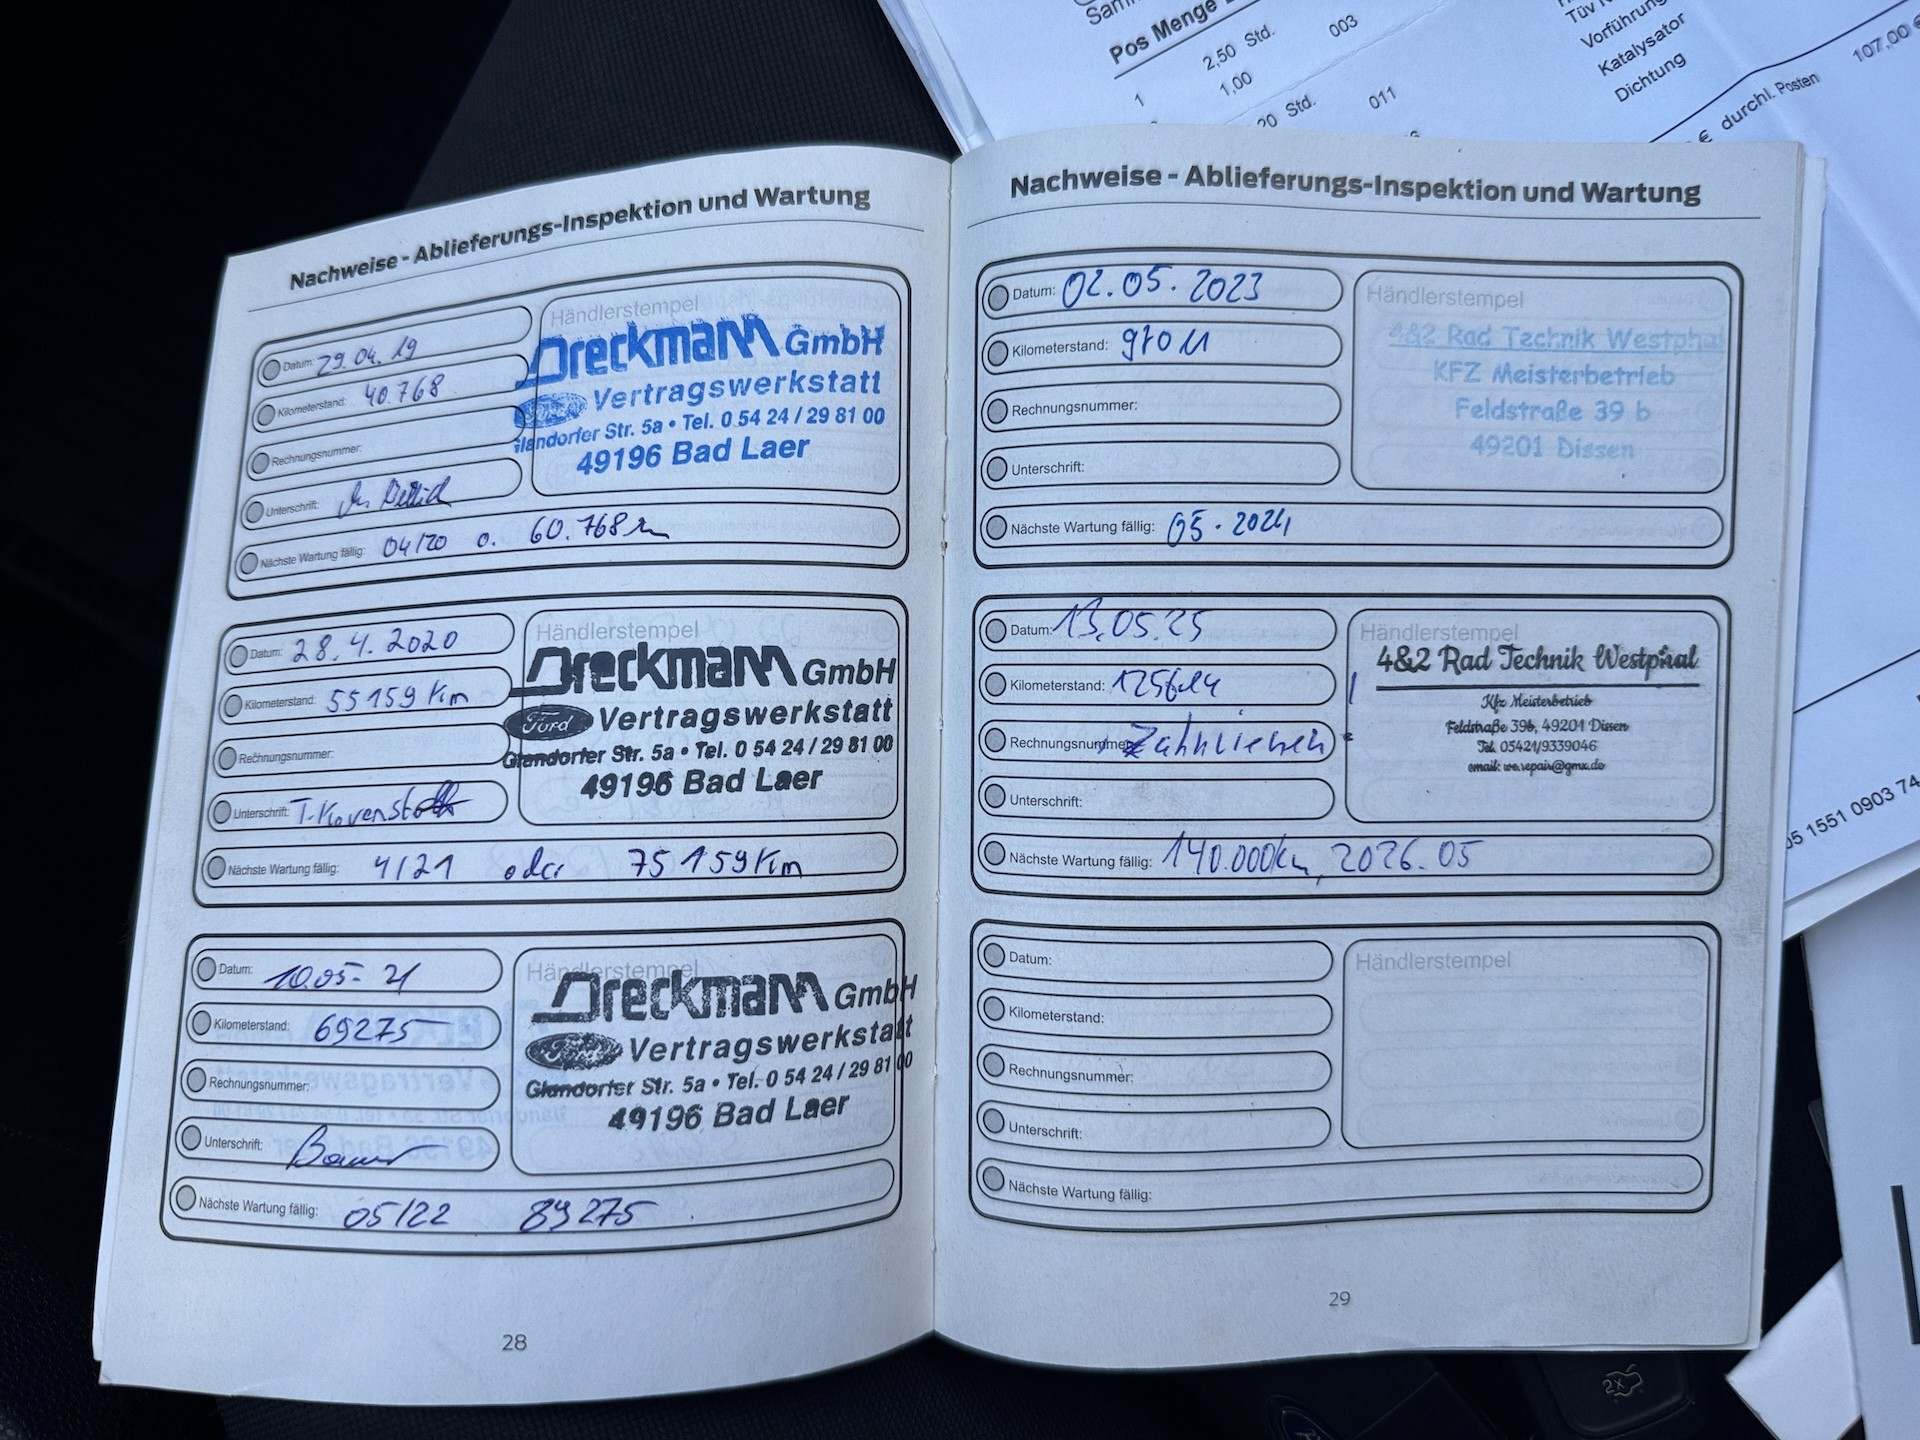 Pos Menge
2,50 Std. 003
1
1,00
20 Std. 011
Vorführung
Katalysator
Dichtung
107,00 €
€ durchl. Posten
Nachweise - Ablieferungs-Inspektion und Wartung
Datum: 29.04.19
Kilometerstand: 40.768
Rechnungsnummer:
Unterschrift:
Nächste Wartung fällig: 04/20 o. 60.768
Händlerstempel
Dreckmann GmbH
Ford Vertragswerkstatt
Glandorfer Str. 5a • Tel. 0 54 24 / 29 81 00
49196 Bad Laer
Datum: 28.4.2020
Kilometerstand: 55159 Km
Rechnungsnummer:
Unterschrift:
Nächste Wartung fällig: 4/21 oder 75159 Km
Händlerstempel
Dreckmann GmbH
Ford Vertragswerkstatt
Glandorfer Str. 5a • Tel. 0 54 24 / 29 81 00
49196 Bad Laer
Datum: 10.05-21
Kilometerstand: 69275
Rechnungsnummer:
Unterschrift:
Nächste Wartung fällig: 05/22 89275
Händlerstempel
Dreckmann GmbH
Ford Vertragswerkstatt
Glandorfer Str. 5a • Tel. 0 54 24 / 29 81 00
49196 Bad Laer
28
Nachweise - Ablieferungs-Inspektion und Wartung
Datum: 02.05.2023
Kilometerstand:
Rechnungsnummer:
Unterschrift:
Nächste Wartung fällig: 05.2024
Händlerstempel
4&2 Rad Technik Westphal
KFZ Meisterbetrieb
Feldstraße 39 b
49201 Dissen
Datum: 13.05.25
Kilometerstand:
Rechnungsnummer: Zahnriemen
Unterschrift:
Nächste Wartung fällig: 140.000km, 2026.05
Händlerstempel
4&2 Rad Technik Westphal
Kfz Meisterbetrieb
Feldstraße 39b, 49201 Dissen
Tel. 05421/9339046
email: we.repair@gmx.de
Datum:
Kilometerstand:
Rechnungsnummer:
Unterschrift:
Nächste Wartung fällig:
Händlerstempel
29
05 1551 0903 74
2x